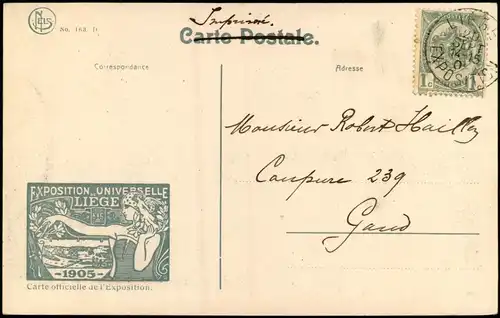 NELS
No. 168. D
Imprimé.
Carte Postale.
Correspondance
Adresse
1c 1c
EXPOSITION
Monsieur Robert Hailley
Coupure 239
Gand
EXPOSITION UNIVERSELLE
LIÈGE
1905
Carte officielle de l'Exposition.